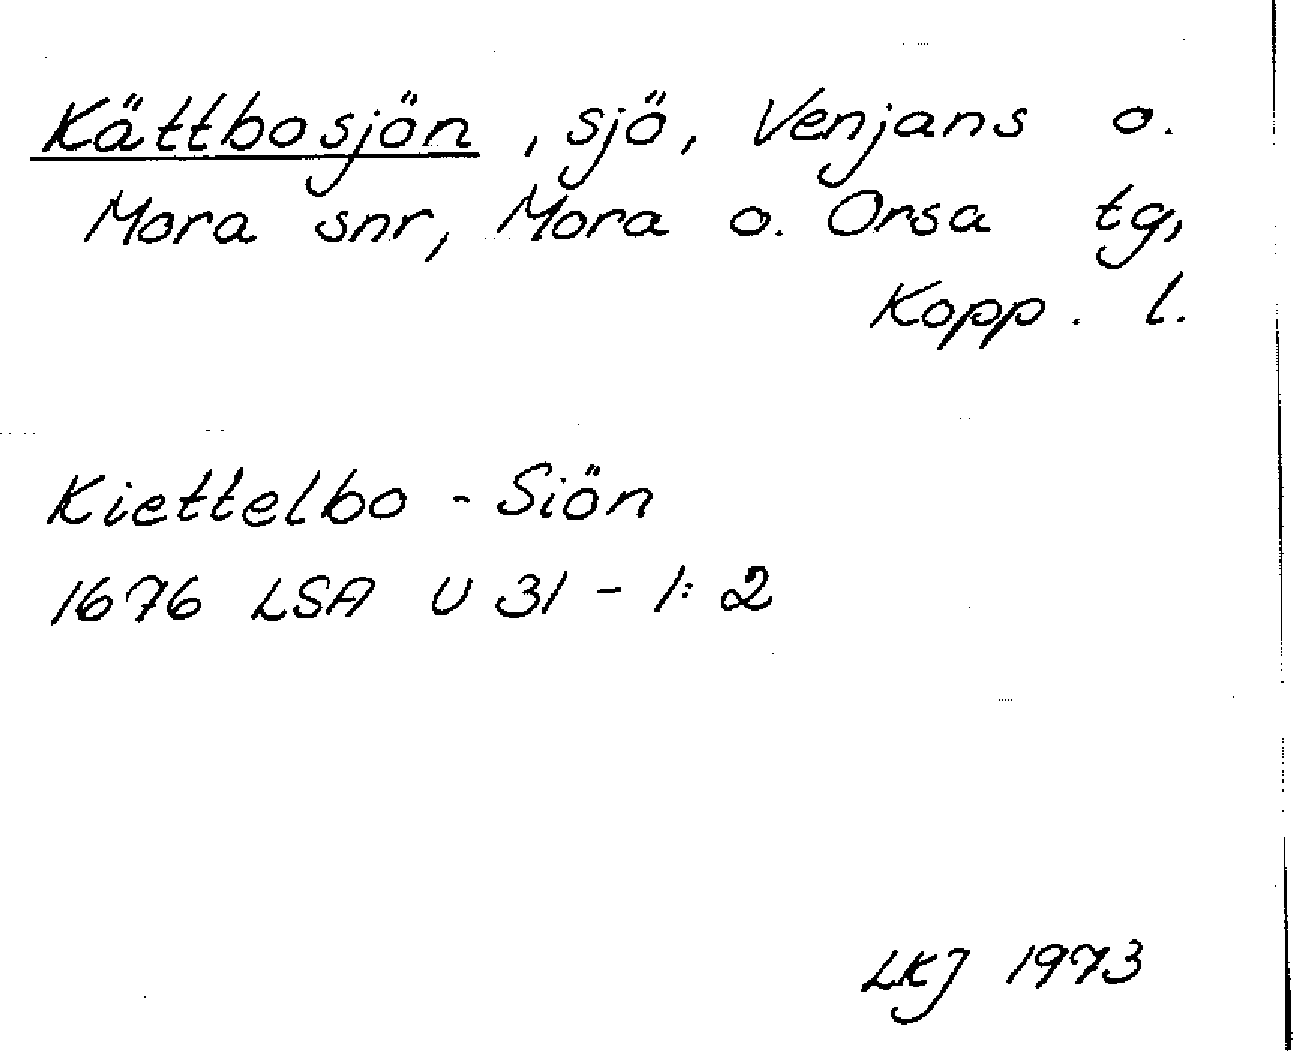 Kättbosjön, sjö, Venjans o.
Mora snr, Mora o. Orsa tg,
Kopp. l.
Kiettelbo - Siön
1676 LSA U 31 - 1:2
LKJ 1973